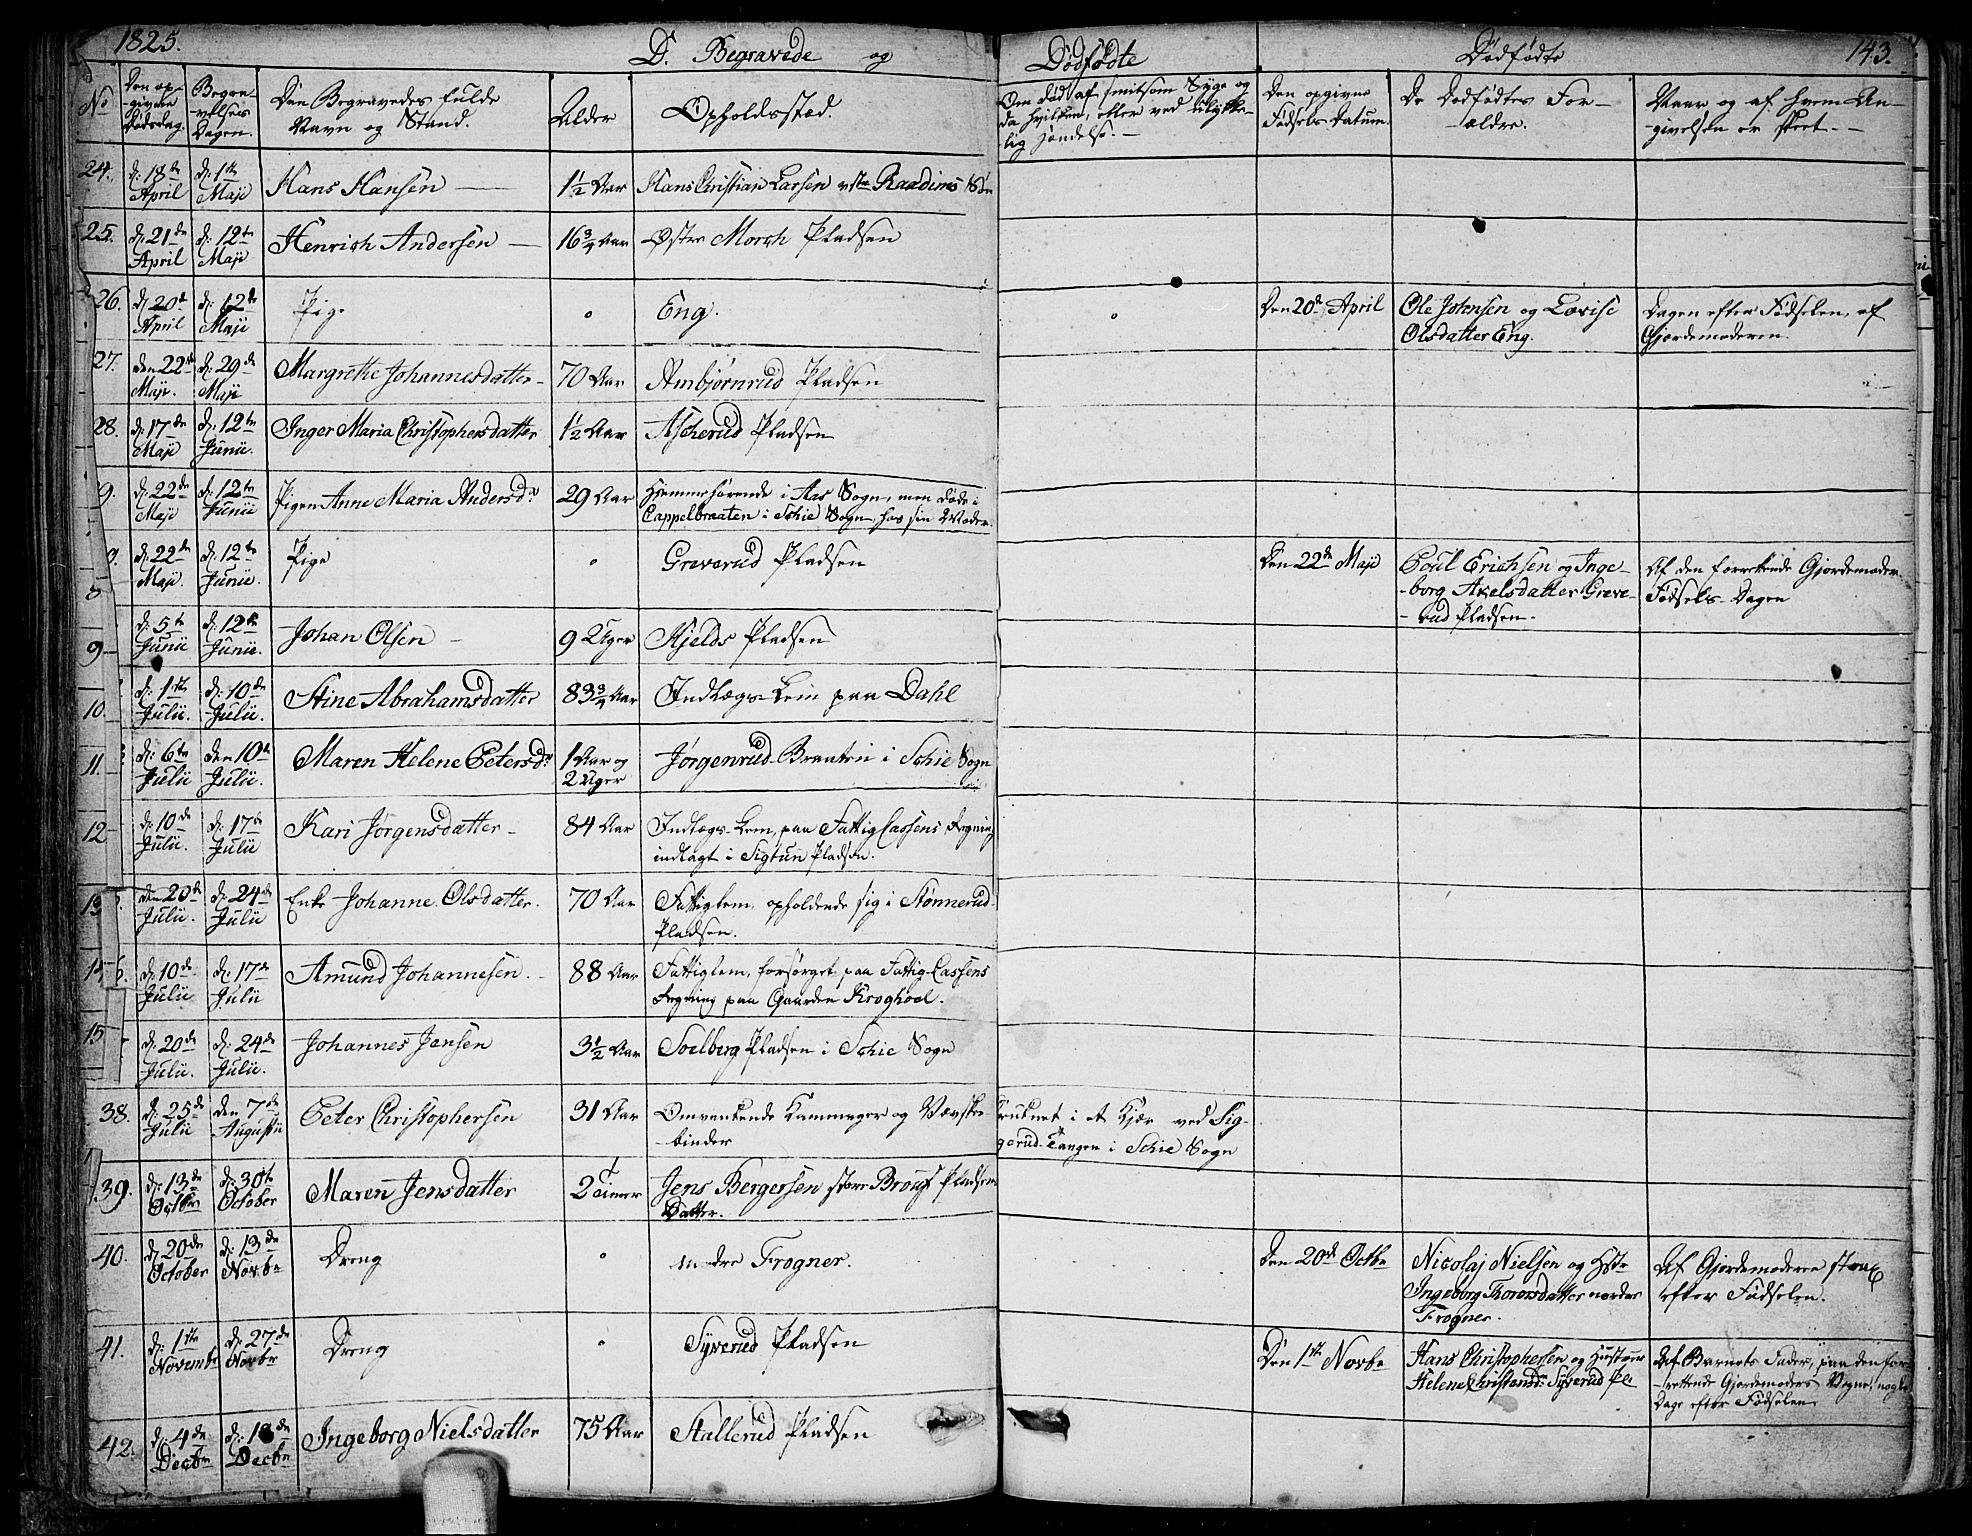 1825.
D. Begravede og Dødfødte
Dødfødte
143.
No
Den op-
-givne
Dødsdag.
Begra-
-velses
Dagen.
Den Begravedes fulde
Navn og Stand.
Alder
Opholdsstæd.
Om død af smitsom Syge og
da hvilken, eller ved ulykke-
-lig Hændelse.-
Den opgivne
Fødsels Datum.
De Dødfødtes For-
-ældre.
Naar og af hvem An-
-givelsen er skeet.-
24. d: 18de April d: 1ste Maji Hans Hansen 1½ Aar Hans Christian Larsen vstre Raadims Søn
25. d: 21de April d: 12te Maji Henrich Andersen 16¾ Aar Øster Morch Pladsen
26. d: 20de April d: 12te Maji Pige Eng. Den 20de April Ole Johnsen og Lovise Dagen efter Fødselen, af
Olsdatter Eng. Gjordemoderen.
27. den 22de Maji. d: 29de Maji Margrethe Johannesdatter- 70 Aar Ambjørnrud Pladsen
28. d: 17de Maji d: 12te Junii. Inger Maria Christophersdatter 1½ Aar Ascherud Pladsen
9. d: 22de Maji d: 12te Junii Pigen Anne Maria Andersdr 29 Aar Hjemmehørende i Aas Sogn, men døde i
Cappelbraaten i Schie Sogn hos sin Moder.
d: 22de Maji. d: 12te Junii. Pige Greverud Pladsen Den 22de Maji Poul Erichsen og Inge- Af den forrettende Gjordemoder
-borg Axelsdatter Greve- Fødsels-Dagen
-rud Pladsen.
8
9 d: 5te Junii d: 12te Junii. Johan Olsen - 9 Uger Hjelds Pladsen
10. d: 1ste Julii. d: 10de Julii. Stine Abrahamsdatter 83¾ Aar Indlægs-Lem paa Dahl
11. d: 6te Julii den 10de Julii. Maren Helene Petersdr 1 Aar og Jørgenrud-Braaten i Schie Sogn
2 Uger
12 d: 10de Julii. d: 17de Julii Kari Jørgensdatter- 84 Aar Indlægs-Lem, paa Fattig Cassens Regning
indlagt i Sigtun Pladsen.
13 den 20de Julii. d: 24de Julii Enke Johanne Olsdatter. 70 Aar Fattiglem, opholdende sig i Stønnerud-
Pladsen.
15 6. d: 10de Julii d: 17de Julii Amund Johannesen. 88 Aar Fattiglem, forsørget paa Fattig-Cassens
Regning paa Gaarden Kroghoel.
15 d: 20de Julii. d: 24de Julii. Johannes Jensen 3½ Aar Soelberg Pladsen i Schie Sogn
38. d: 25de Julii den 7de Augustii Peter Christophersen 31 Aar Omvankende Kammager og Vævske-
-binder Druknet i et Kjær ved Sig-
gerud-Tangen i Schie Sogn
39. d: 13de Octbr d: 30te October Maren Jensdatter 2 Timer Jens Bergersen store Brough Pladsens
Datter.
40. d: 20de October d: 13de Novbr Dreng nordre Frogner. Den 20de Octbr Nicolaj Nielsen og Hstr Af Gjordemoderen strax
Ingeborg Thoresdatter nordre efter Fødselen.
Frogner.
41. d: 1ste Novembr d: 27de Novbr Dreng Syverud Pladsen Den 1ste Novbr Hans Christophersen og Hustrue Af Barnets Fader, paa den for-
Helene Christensdr: Syverud Pl -rettende Gjordemoders Vegne, nogle
Dage efter Fødselen
42. d: 4de Decbr d: 18de Decbr Ingeborg Nielsdatter 75 Aar Stallerud Pladsen